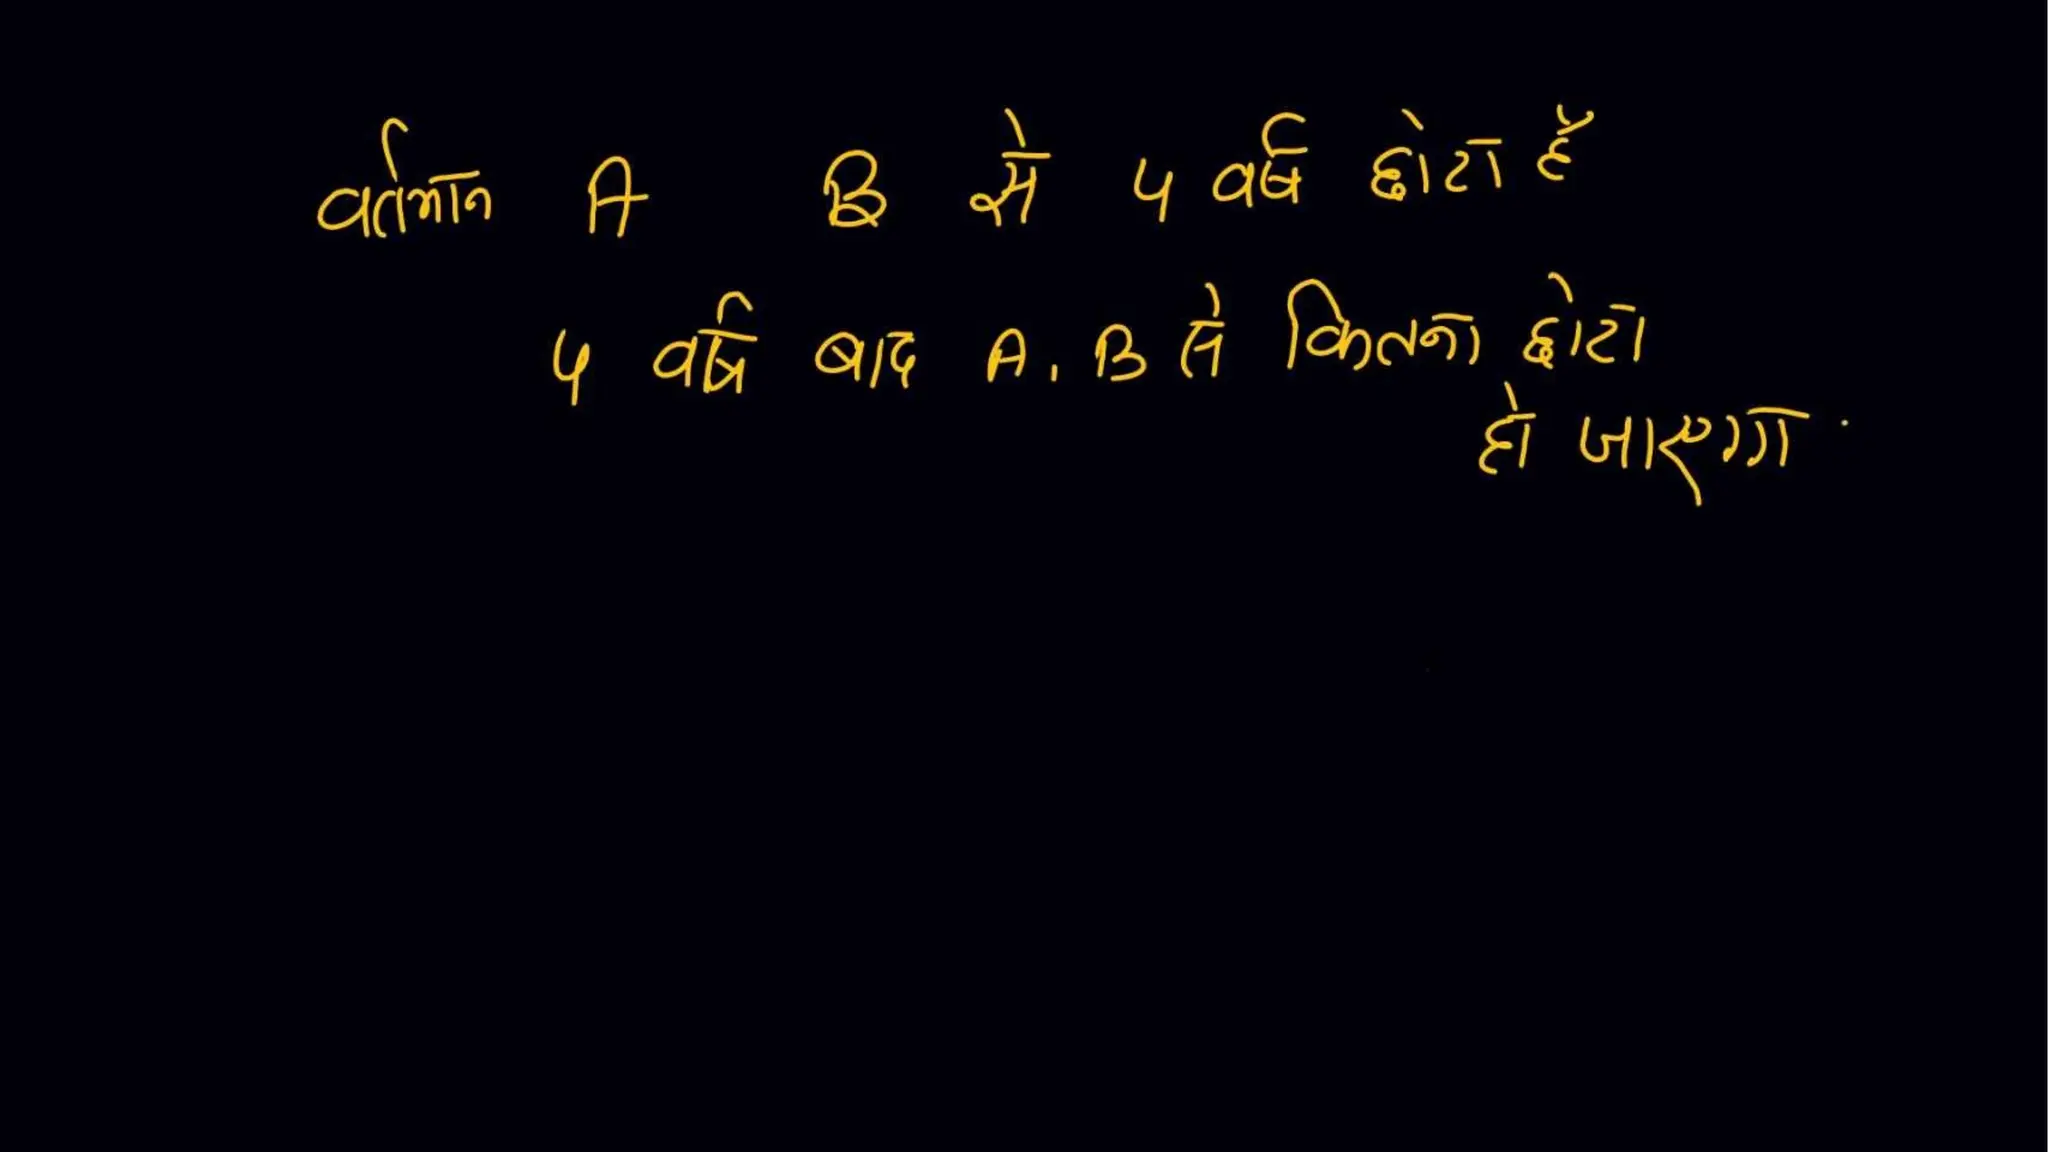 वर्तमान A B से 4 वर्ष छोटा है
4 वर्ष बाद A, B से कितना छोटा
हो जाएगा